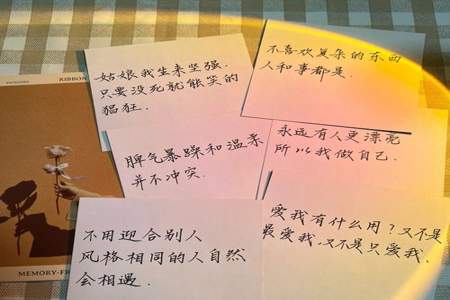 RIBBON
姑娘我生来坚强.
只要没死就能笑的
猖狂.
不喜欢复杂的东西
人和事都是.
脾气暴躁和温柔
并不冲突.
永远有人更漂亮
所以我做自己.
不用迎合别人
风格相同的人自然
会相遇.
爱我有什么用?又不是
最爱我,又不是只爱我.
MEMORY-FR